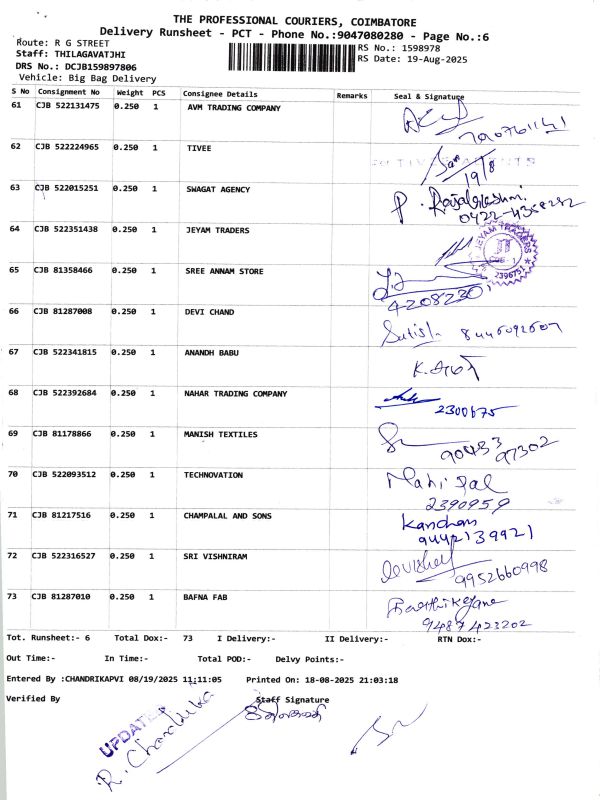 THE PROFESSIONAL COURIERS, COIMBATORE
Delivery Runsheet - PCT - Phone No.:9047080280 - Page No.:6
Route: R G STREET
RS No.: 1598978
Staff: THILAGAVATJHI
RS Date: 19-Aug-2025
DRS No.: DCJB159897806
Vehicle: Big Bag Delivery
S No Consignment No Weight PCS Consignee Details Remarks Seal & Signature
61 CJB 522131475 0.250 1 AVM TRADING COMPANY
62 CJB 522224965 0.250 1 TIVEE 19/8
63 CJB 522015251 0.250 1 SWAGAT AGENCY P. Rajalakshmi
64 CJB 522351438 0.250 1 JEYAM TRADERS JEYAM TRADERS 2396751
65 CJB 81358466 0.250 1 SREE ANNAM STORE 4208230
66 CJB 81287008 0.250 1 DEVI CHAND Satish
67 CJB 522341815 0.250 1 ANANDH BABU
68 CJB 522392684 0.250 1 NAHAR TRADING COMPANY 2300675
69 CJB 81178866 0.250 1 MANISH TEXTILES 90483 97302
70 CJB 522093512 0.250 1 TECHNOVATION Mahipal 2390959
71 CJB 81217516 0.250 1 CHAMPALAL AND SONS Kancham 9442139921
72 CJB 522316527 0.250 1 SRI VISHNIRAM 9952660998
73 CJB 81287010 0.250 1 BAFNA FAB 9487423202
Tot. Runsheet:- 6 Total Dox:- 73 I Delivery:- II Delivery:- RTN Dox:-
Out Time:- In Time:- Total POD:- Delvy Points:-
Entered By :CHANDRIKAPVI 08/19/2025 11:11:05 Printed On: 18-08-2025 21:03:18
Verified By Staff Signature
UPDATED
R. Chandrika